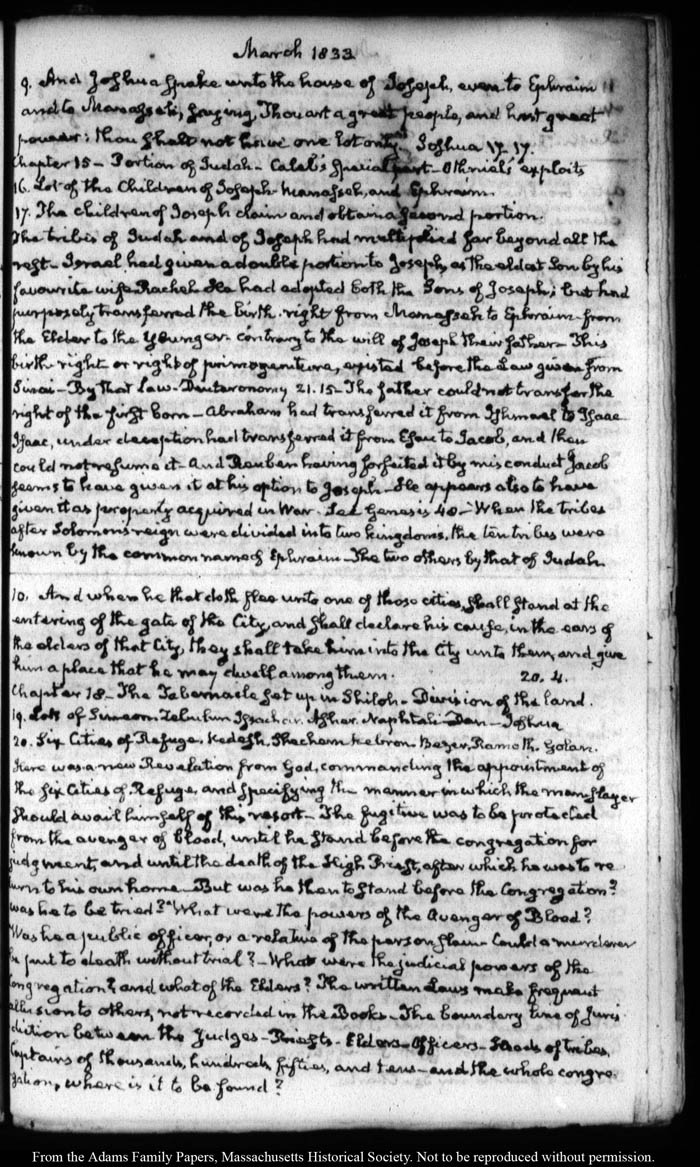 March 1833
9. And Joshua spake unto the house of Joseph, even to Ephraim
and to Manasseh, saying, Thou art a great people, and hast great
power: thou shalt not have one lot only Joshua 17. 17.
Chapter 15 - Portion of Judah - Caleb's special part - Othniel's exploits
16. Lot of the Children of Joseph. Manasseh, and Ephraim.
17. The children of Joseph claim and obtain a second portion.
The tribes of Judah and of Joseph had multiplied far beyond all the
rest - Israel had given a double portion to Joseph, as the eldest Son by his
favourite wife Rachel. He had adopted both the Sons of Joseph; but had
purposely transferred the birth-right from Manasseh to Ephraim - from
the Elder to the Younger - contrary to the will of Joseph their father - This
birth-right or right of primogeniture, existed before the Law given from
Sinai - By that Law - Deuteronomy 21. 15 - The father could not transfer the
right of the first born - Abraham had transferred it from Ishmael to Isaac
Isaac, under deception had transferred it from Esau to Jacob, and then
could not resume it - And Reuben having forfeited it by misconduct Jacob
seems to have given it at his option to Joseph - He appears also to have
given it as property acquired in War. See Genesis 48 - When the tribes
after Solomon's reign were divided into two kingdoms, the ten tribes were
known by the common name of Ephraim - The two others by that of Judah.
10. And when he that doth flee unto one of those cities, shall stand at the
entering of the gate of the City, and shall declare his cause, in the ears of
the elders of that City, they shall take him into the City unto them, and give
him a place that he may dwell among them. 20. 4.
Chapter 18 - The Tabernacle set up in Shiloh - Division of the land.
19. Lots of Simeon. Zebulun Issachar. Asher. Naphtali Dan - Joshua
20. Six Cities of Refuge, Kedesh, Shechem Hebron - Bezer, Ramoth. Golan.
Here was a new Revelation from God, commanding the appointment of
the six Cities of Refuge, and specifying the manner in which the man slayer
should avail himself of this resort - The fugitive was to be protected
from the avenger of blood, until he stand before the congregation for
judgment, and until the death of the High Priest, after which he was to re
turn to his own home - But was he then to stand before the Congregation?
was he to be tried? What were the powers of the Avenger of Blood?
Was he a public officer, or a relative of the person slain - Could a murderer
be put to death without trial? - What were the judicial powers of the
Congregation? and what of the Elders? The written Laws make frequent
allusion to others, not recorded in the Books - The boundary line of Juris
diction between the Judges - Priests - Elders - Officers - Heads of tribes,
Captains of thousands, hundreds fifties, and tens - and the whole congre
gation, where is it to be found?
From the Adams Family Papers, Massachusetts Historical Society. Not to be reproduced without permission.